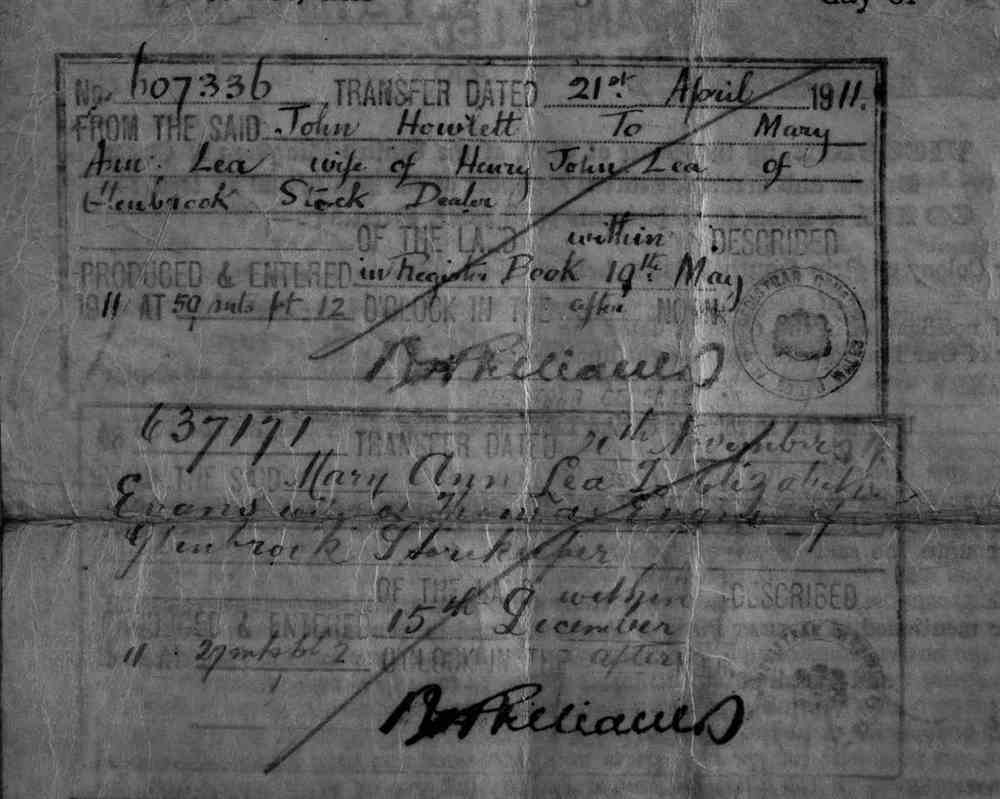 day of
No. 607336 TRANSFER DATED 21st April 1911.
FROM THE SAID John Howlett To Mary
Ann Lea wife of Henry John Lea of
Glenbrook Stock Dealer
OF THE LAND within DESCRIBED
PRODUCED & ENTERED in Register Book 19th May
1911 AT 59 mts pt 12 O'CLOCK IN THE after NOON
637171 TRANSFER DATED November
THE SAID Mary Ann Lea To Elizabeth
Evans wife of Thomas Evans of
Glenbrook Storekeeper
OF THE LAND within DESCRIBED
PRODUCED & ENTERED 15th December
11 AT 27 mts pt 2 O'CLOCK IN THE after